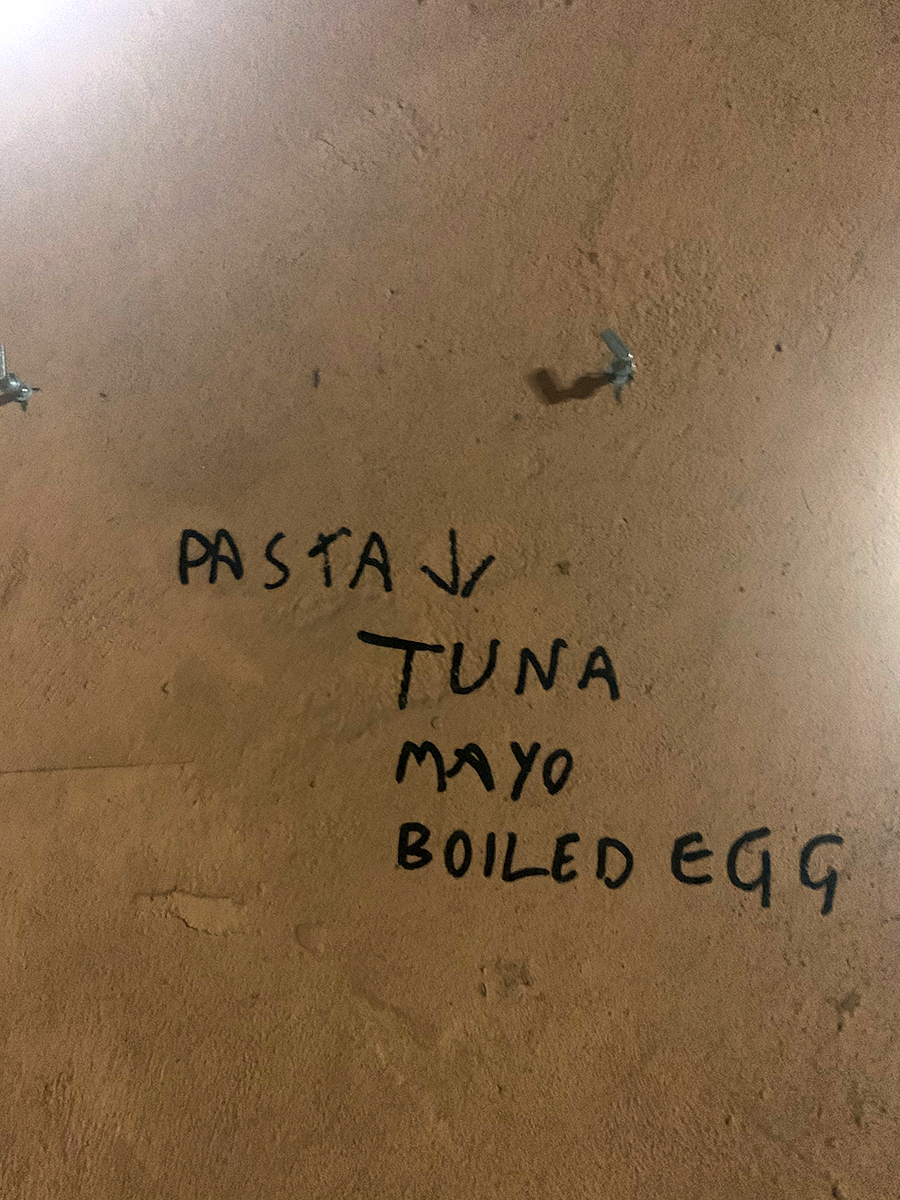 PASTA ↓
TUNA
MAYO
BOILED EGG